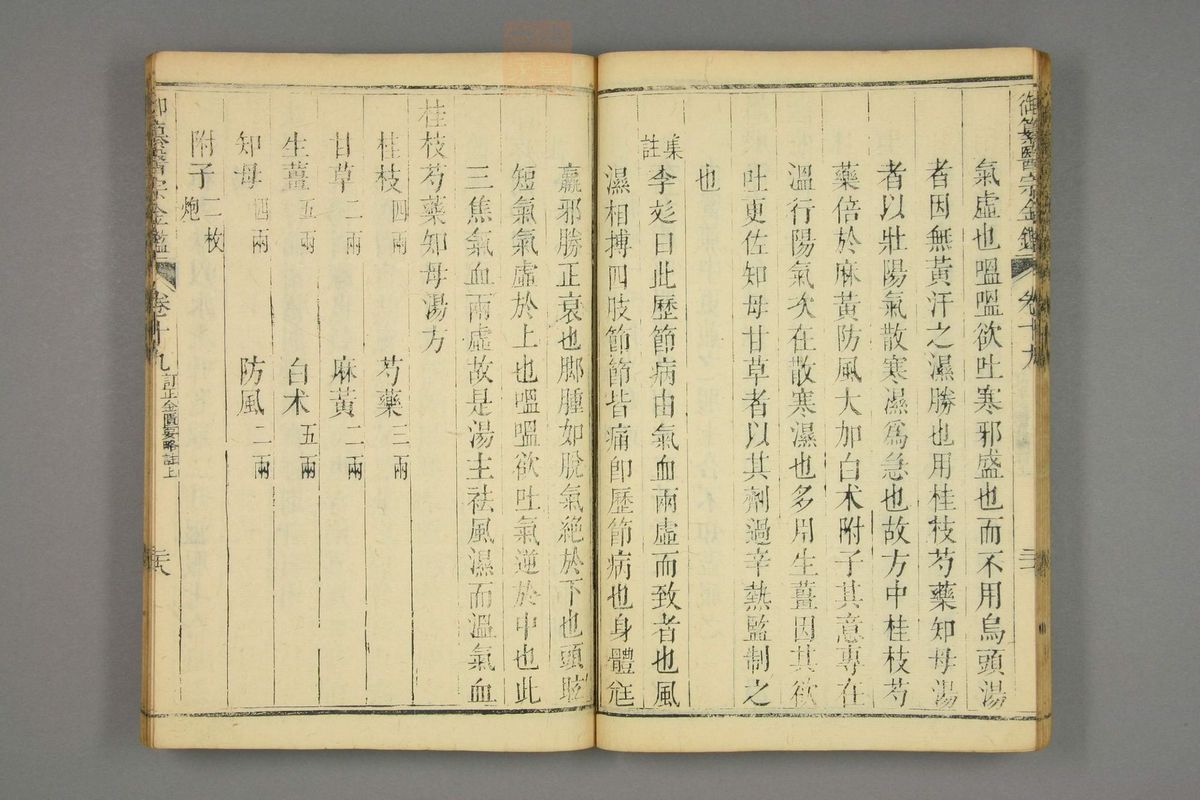 御纂醫宗金鑑
卷十九
氣虛也嗢嗢欲吐寒邪盛也而不用烏頭湯
者因無黃汗之濕勝也用桂枝芍藥知母湯
者以壯陽氣散寒濕爲急也故方中桂枝芍
藥倍於麻黃防風大加白朮附子其意專在
溫行陽氣次在散寒濕也多用生薑因其欲
吐更佐知母甘草者以其劑過辛熱監制之
也
集註
李彣曰此歷節病由氣血兩虛而致者也風
濕相搏四肢節節皆痛卽歷節病也身體尪
羸邪勝正衰也腳腫如脫氣絕於下也頭眩
短氣氣虛於上也嗢嗢欲吐氣逆於中也此
三焦氣血兩虛故是湯主祛風濕而溫氣血
桂枝芍藥知母湯方
桂枝四兩 芍藥三兩
甘草二兩 麻黃二兩
生薑五兩 白朮五兩
知母四兩 防風二兩
附子二枚炮
御纂醫宗金鑑
卷十九
訂正金匱要略註上